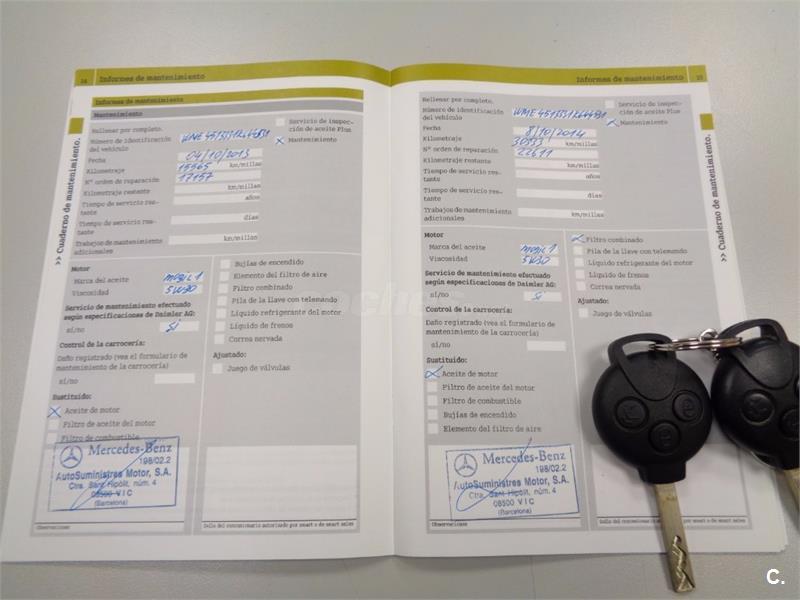 14 Informes de mantenimiento
Informes de mantenimiento
Mantenimiento
Rellenar por completo.
Servicio de inspección
de aceite Plus
Número de identificación
del vehículo
Mantenimiento
Fecha 04/10/2013
Kilometraje 15565 km/millas
Nº orden de reparación 17157
Kilometraje restante km/millas
Tiempo de servicio res-
tante años
Tiempo de servicio res-
tante días
Trabajos de mantenimiento
adicionales km/millas
>> Cuaderno de mantenimiento.
Motor
Marca del aceite Mobil 1
Viscosidad 5W30
Servicio de mantenimiento efectuado
según especificaciones de Daimler AG:
sí/no Si
Control de la carrocería:
Daño registrado (vea el formulario de
mantenimiento de la carrocería)
sí/no
Sustituido:
Aceite de motor
Filtro de aceite del motor
Filtro de combustible
Bujías de encendido
Elemento del filtro de aire
Filtro combinado
Pila de la llave con telemando
Líquido refrigerante del motor
Líquido de frenos
Correa nervada
Ajustado:
Juego de válvulas
Mercedes-Benz
198/02.2
AutoSuministres Motor, S.A.
Ctra. Sant Hipòlit, núm. 4
08500 VIC
(Barcelona)
Observaciones
Sello del concesionario autorizado por smart o de smart sales
Informes de mantenimiento 15
Rellenar por completo.
Servicio de inspec-
ción de aceite Plus
Número de identificación
del vehículo
Mantenimiento
Fecha 8/10/2014
Kilometraje 30333 km/millas
Nº orden de reparación 22611
Kilometraje restante km/millas
Tiempo de servicio res-
tante años
Tiempo de servicio res-
tante días
Trabajos de mantenimiento
adicionales km/millas
>> Cuaderno de mantenimiento.
Motor
Marca del aceite Mobil 1
Viscosidad 5W30
Servicio de mantenimiento efectuado
según especificaciones de Daimler AG:
sí/no Si
Control de la carrocería:
Daño registrado (vea el formulario de
mantenimiento de la carrocería)
sí/no
Sustituido:
Aceite de motor
Filtro de aceite del motor
Filtro de combustible
Bujías de encendido
Elemento del filtro de aire
Filtro combinado
Pila de la llave con telemando
Líquido refrigerante del motor
Líquido de frenos
Correa nervada
Ajustado:
Juego de válvulas
Mercedes-Benz
198/02.2
AutoSuministres Motor, S.A.
Ctra. Sant Hipòlit, núm. 4
08500 VIC
(Barcelona)
Observaciones
coches
C.